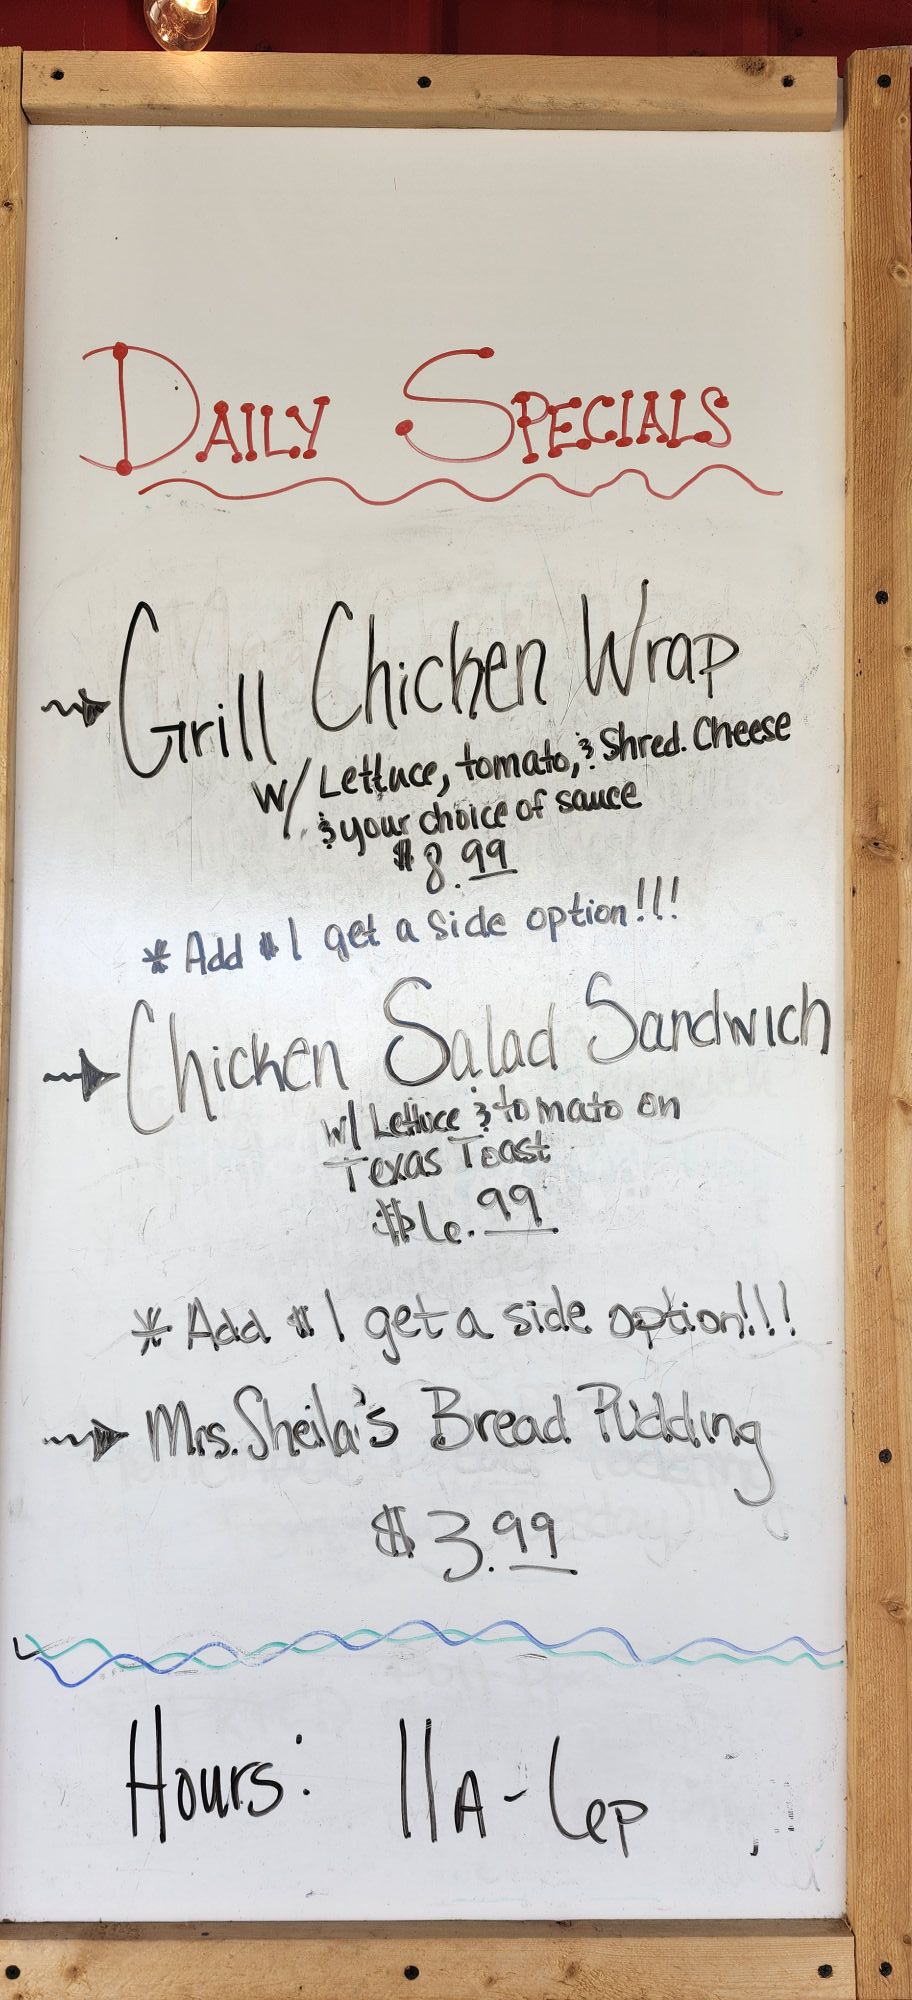 DAILY SPECIALS
Grill Chicken Wrap
w/ Lettuce, tomato, & Shred. Cheese
& your choice of sauce
$8.99
* Add $1 get a side option!!!
Chicken Salad Sandwich
w/ Lettuce & tomato on
Texas Toast
$6.99
* Add $1 get a side option!!!
Mrs. Sheila's Bread Pudding
$3.99
Hours: 11A-6P